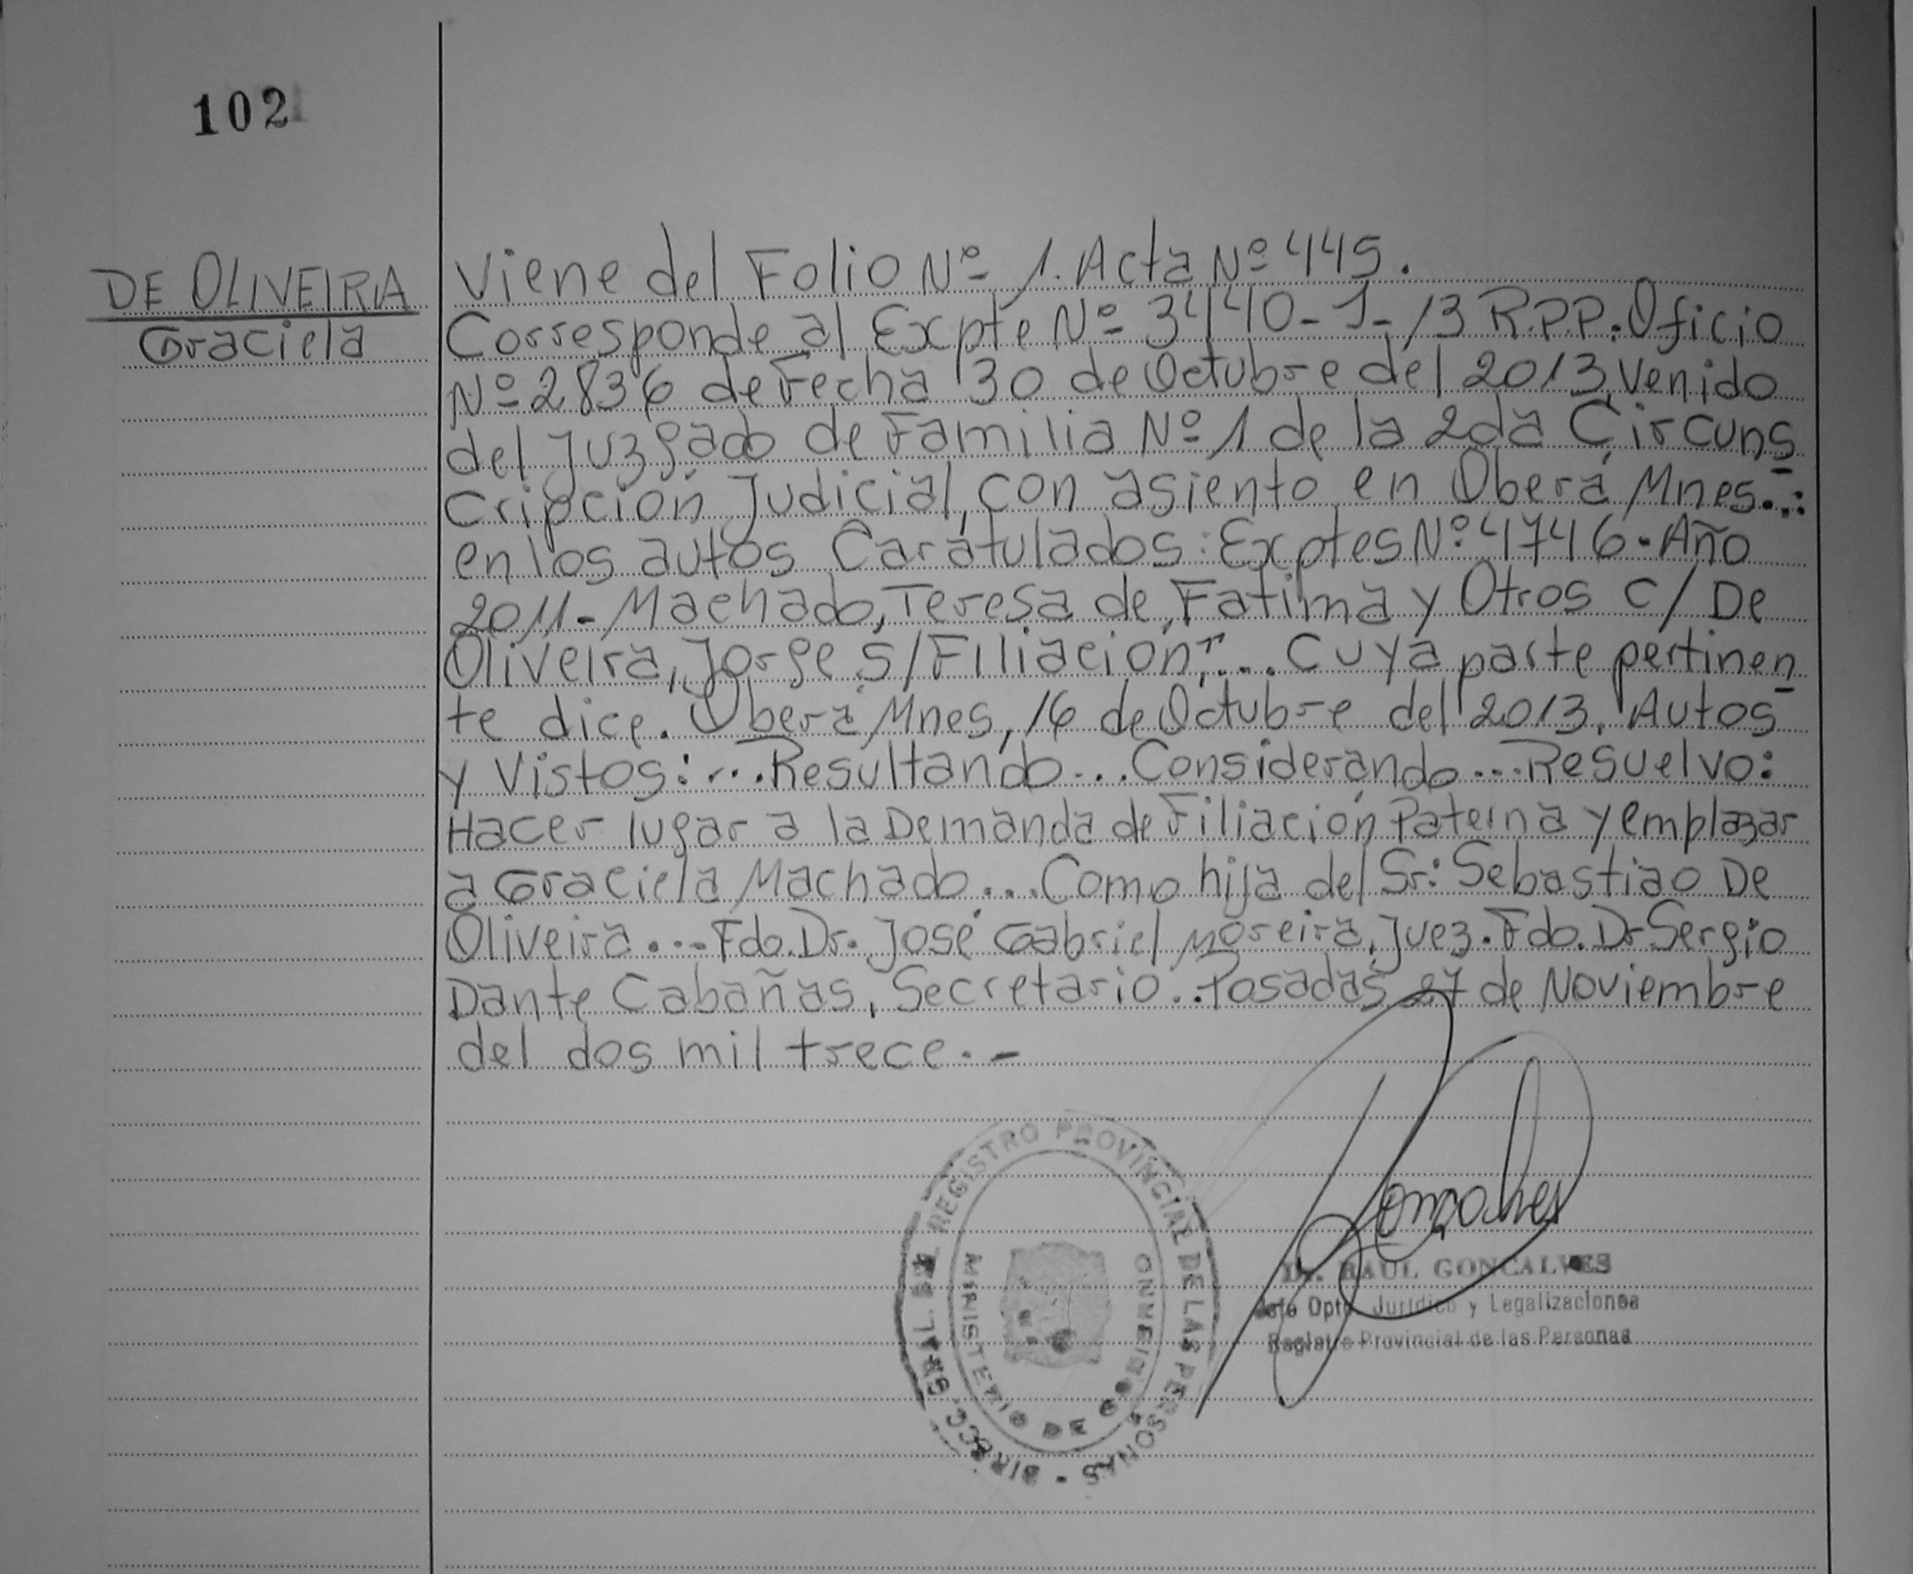 102
DE OLIVEIRA
Graciela
Viene del Folio Nº 1. Acta Nº 445.
Corresponde al Expte Nº 3440-J-13 R.P.P. Oficio
Nº 2836 de Fecha 30 de Octubre del 2013, Venido
del Juzgado de Familia Nº 1 de la 2da Circuns
cripción Judicial, con asiento en Oberá Mnes.:
en los autos Caratulados: Exptes Nº 4746. Año
2011- Machado, Teresa de Fatima y Otros C/ De
Oliveira, Jorge S/ Filiación"... Cuya parte pertinen
te dice. Oberá Mnes, 16 de Octubre del 2013. Autos
y Vistos:...Resultando...Considerando...Resuelvo:
Hacer lugar a la Demanda de Filiación Paterna y emplazar
a Graciela Machado...Como hija del Sr: Sebastiao De
Oliveira...Fdo. Dr. José Gabriel Moreira, Juez. Fdo. Dr Sergio
Dante Cabañas, Secretario..Posadas 27 de Noviembre
del dos mil trece.-
REGISTRO PROVINCIAL DE LAS PERSONAS - DIRECC. GRAL.
MINISTERIO DE GOBIERNO
Goncalves
Dr. RAUL GONCALVES
Jefe Dpto. Jurídico y Legalizaciones
Registro Provincial de las Personas